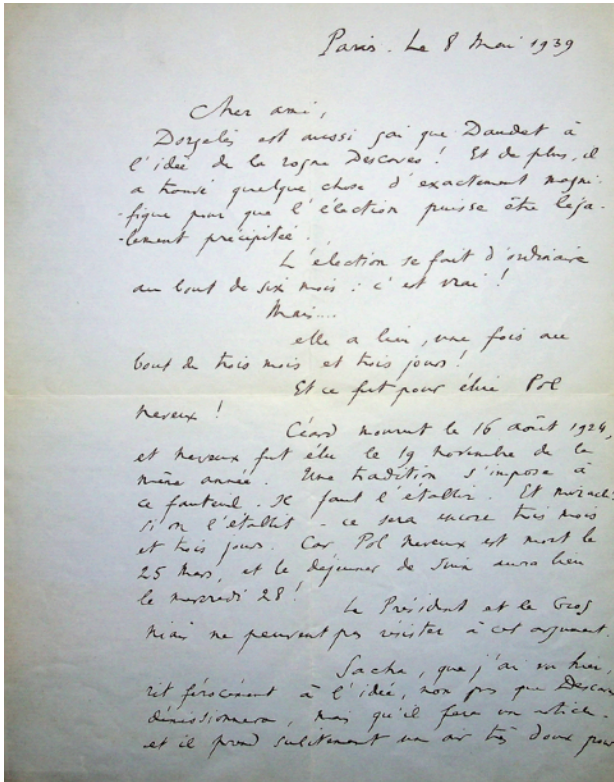 Paris. Le 8 Mai 1939
Cher ami,
Dorgelès est aussi gai que Daudet à
l'idée de la rogne Descaves ! Et de plus, il
a trouvé quelque chose d'exactement magni-
-fique pour que l'élection puisse être léga-
-lement précipitée.
L'élection se fait d'ordinaire
au bout de six mois : c'est vrai !
Mais....
elle a lieu, une fois au
bout de trois mois et trois jours !
Et ce fut pour élire Pol
Neveux !
Céard mourut le 16 août 1924,
et Neveux fut élu le 19 novembre de la
même année. Une tradition s'impose à
ce fauteuil. Il faut l'établir. Et miracle
si on l'établit - ce sera encore trois mois
et trois jours. Car Pol Neveux est mort le
25 Mars, et le déjeuner de Juin aura lieu
le mercredi 28 !
Le Président et le Gros
Niais ne peuvent pas résister à cet argument
Sacha, que j'ai vu hier,
rit férocement à l'idée, non pas que Descaves
démissionnera, mais qu'il fera un article.
et il prend subitement un air très doux pour